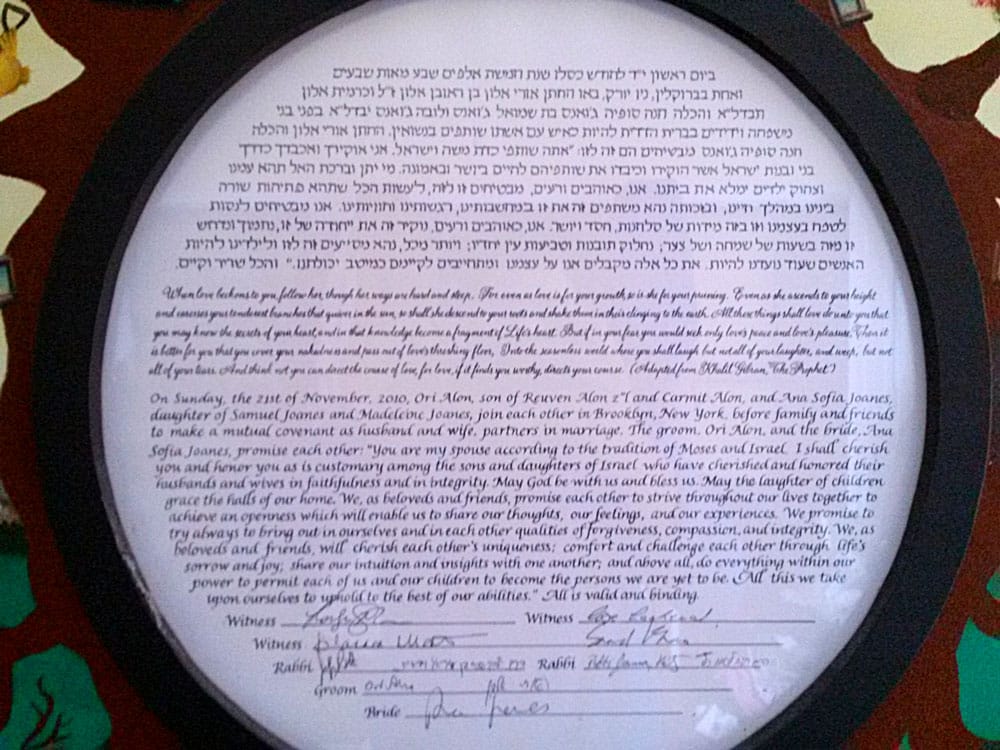 ביום ראשון י״ד לחודש כסלו שנת חמשת אלפים שבע מאות שבעים
ואחת בברוקלין, ניו יורק, באו החתן אורי אלון בן ראובן אלון ז״ל וכרמית אלון
תבדל״א והכלה חנה סופיה ג׳ואנס בת שמואל ג׳ואנס ולובה ג׳ואנס יבדל״א בפני בני
משפחה וידידים בברית הדדית להיות כאיש עם אשתו שותפים בנשואין. החתן אורי אלון והכלה
חנה סופיה ג׳ואנס מבטיחים הם זה לזו: ״אתה שותפי כדת משה וישראל. אני אוקירך ואכבדך כדרך
בני ובנות ישראל אשר הוקירו וכיבדו את שותפיהם לחיים ביושר ובאמונה. מי יתן וברכת האל תהא עמנו
וצחוק ילדים ימלא את ביתנו. אנו, כאוהבים ורעים, מבטיחים זו לזה, לעשות הכל שתהא פתיחות שורה
בינינו במהלך חיינו, ובזכותה נהא משתפים זה את זו במחשבותינו, רגשותינו וחוויותינו. אנו מבטיחים לנסות
לטפח בעצמנו וזו בזה מידות של סלחנות, חסד ויושר. אנו, כאוהבים ורעים, נוקיר זה את ייחודה של זו, נתמוך ונדחש
זו מזה בשעות של שמחה ושל צער; נחלוק תובנות וטביעות עין יחדיו; ויותר מכל, נהא מסייעים זה לזו ולילדינו להיות
האנשים שעוד נועדנו להיות. את כל אלה מקבלים אנו על עצמנו ומתחייבים לקיימם כמיטב יכולתנו.״ והכל שריר וקיים.
When love beckons to you, follow her, though her ways are hard and steep. For even as love is for your growth, so is she for your pruning. Even as she ascends to your height
and caresses your tenderest branches that quiver in the sun, so shall she descend to your roots and shake them in their clinging to the earth. All these things shall love do unto you that
you may know the secrets of your heart, and in that knowledge become a fragment of Life's heart. But if in your fear you would seek only love's peace and love's pleasure, Then it
is better for you that you cover your nakedness and pass out of love's threshing floor, Into the seasonless world where you shall laugh but not all of your laughter, and weep, but not
all of your tears. And think not you can direct the course of love, for love, if it finds you worthy, directs your course. (Adapted from Khalil Gibran, "The Prophet")
On Sunday, the 21st of November, 2010, Ori Alon, son of Reuven Alon z"l and Carmit Alon, and Ana Sofia Joanes,
daughter of Samuel Joanes and Madeleine Joanes, join each other in Brooklyn, New York, before family and friends
to make a mutual covenant as husband and wife, partners in marriage. The groom, Ori Alon, and the bride, Ana
Sofia Joanes, promise each other: "You are my spouse according to the tradition of Moses and Israel. I shall cherish
you and honor you as is customary among the sons and daughters of Israel who have cherished and honored their
husbands and wives in faithfulness and in integrity. May God be with us and bless us. May the laughter of children
grace the halls of our home. We, as beloveds and friends, promise each other to strive throughout our lives together to
achieve an openness which will enable us to share our thoughts, our feelings, and our experiences. We promise to
try always to bring out in ourselves and in each other qualities of forgiveness, compassion, and integrity. We, as
beloveds and friends, will cherish each other's uniqueness; comfort and challenge each other through life's
sorrow and joy; share our intuition and insights with one another; and above all, do everything within our
power to permit each of us and our children to become the persons we are yet to be. All this we take
upon ourselves to uphold to the best of our abilities." All is valid and binding.
Witness Witness
Witness
Rabbi Rabbi
Groom Ori Alon
Bride